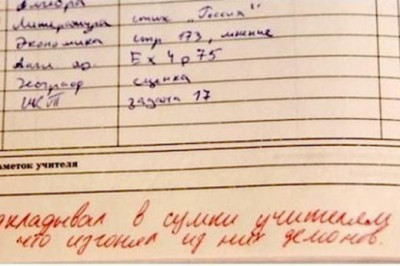 Алгебра
Литература стих "Россия"
Экономика стр 173, мнение
Англ. яз. Ex 4 p 75
Географ сценка
задача 17
аметок учителя
акладывал в сумки учителям
что изгонял из них демонов.